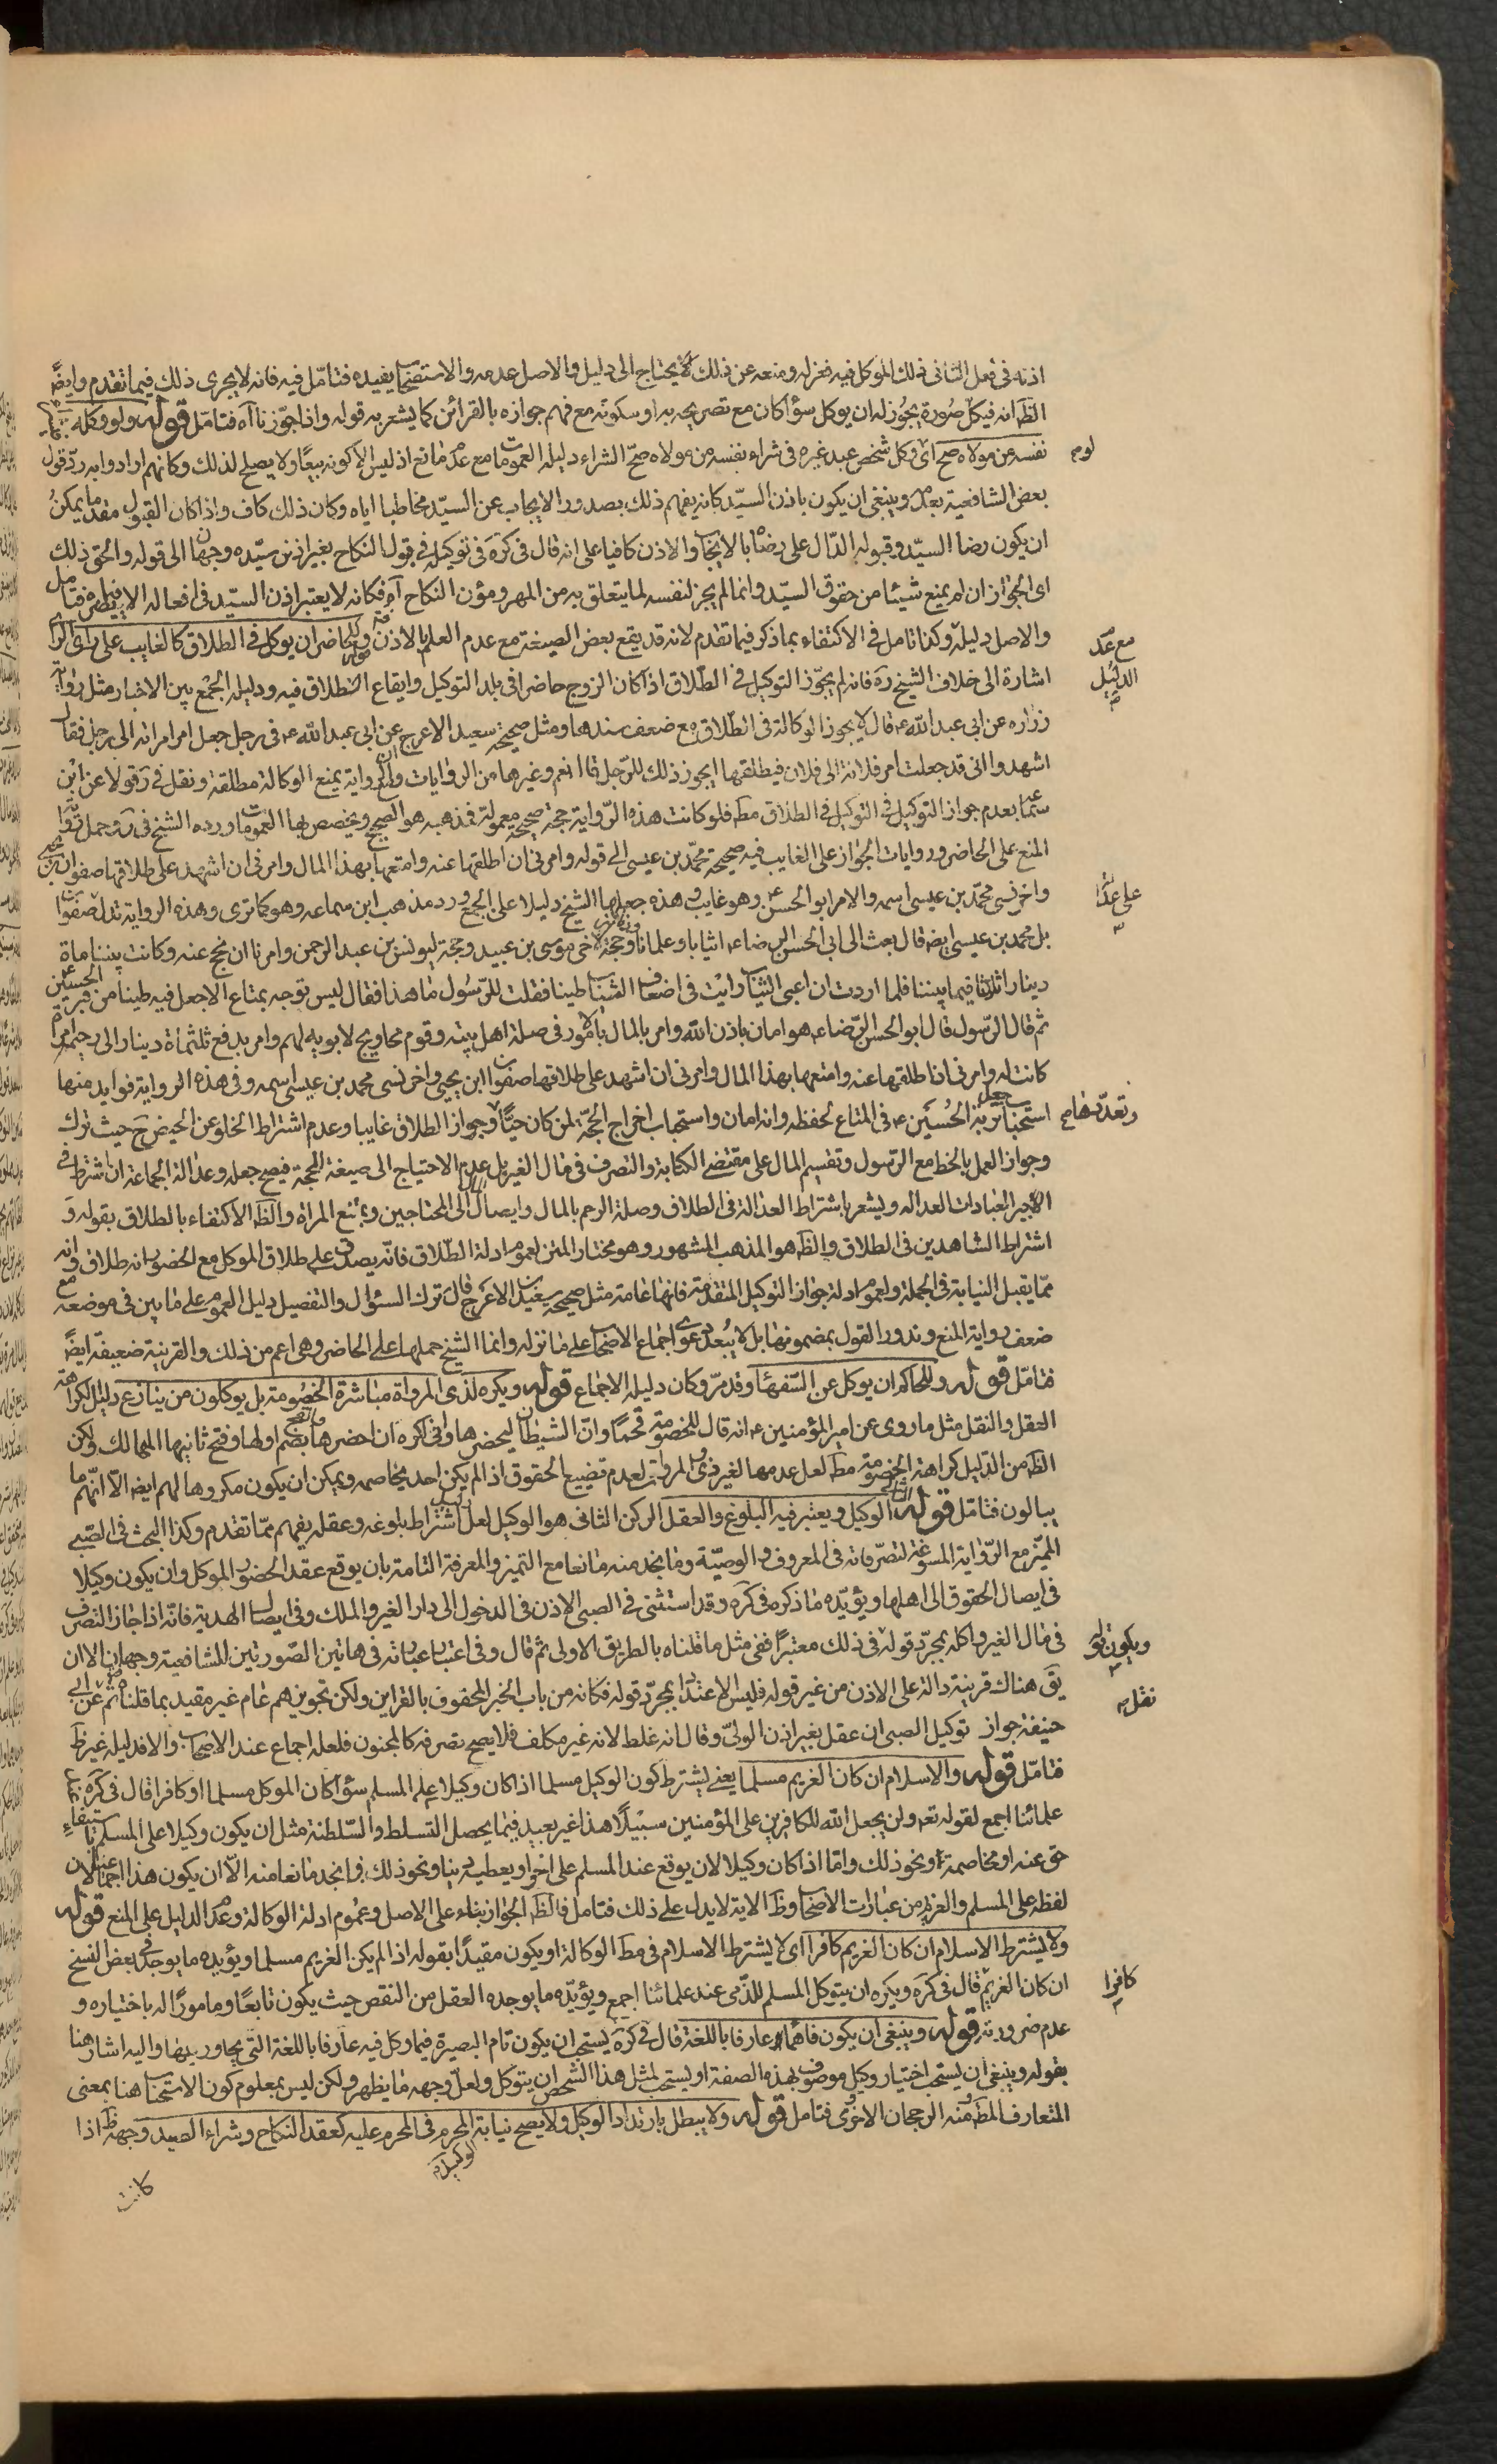 اذنه فى فعل الثانى ذلك الموكل فيه فعزله ومنعه عن ذلك لا يحتاج الى دليل والاصل عدمه والاستصحاب يفيده فتامّل فيه فانه لا يجرى ذلك فيما تقدم وايضً
الظ انه فيكلّ صُورة يجُوز له ان يوكل سوٓأ كان مع تصريحه به او سكوته مع فهم جوازه بالقرائن كما يشعر به قوله واذا جوّزنا آه فتامّل قوله ولو وكله
نفسه من مولاه صح اى وكل شخص عبد غيره فى شراء نفسه من مولاه صحّ الشراء دليله العمومات مع عدم مانع اذ ليس الا كونه بيعًا ولا يصلح لذلك وكانهم ارادوا به ردّ قول
بعض الشافعية بعدمه وينبغى ان يكون باذن السيّد كانه يفهم ذلك بصدور الايجاب عن السيّد مخاطبا اياه وكان ذلك كاف واذا كان القبول مقدما يمكنُ
ان يكون رضا السيّد وقبوله الدّال على رضاه بالايجاب والاذن كافيا على انه قال فى كرَه فى توكيله فى قبول النكاح بغير اذن سيّده وجهان الى قوله والحق ذلك
اى الجواز ان لم يمنع شيئا من حقوق السيّد وانما لم يجز لنفسه لما يتعلق به من المهر ومؤن النكاح آه فكانه لا يعتبر اذن السيّد فى افعاله الا فيما يضره فتامل
والاصل دليله وكذا تامل فى الاكتفاء بما ذكر فيما تقدم لانه قد يقع بعض الصيغة مع عدم العلم بالاذن قوله وللحاضر ان يوكل فى الطلاق كالغايب على راى
اشارة الى خلاف الشيخ ره فانه لم يجوّز التوكيل فى الطّلاق اذا كان الزوج حاضرا فى بلد التوكيل وايقاع الطلاق فيه ودليله الجمْع بين الاخبار مثل رواية
زراره عن ابى عبد الله ع قال لا يجوز الوكالة فى الطّلاق مع ضعف سندها ومثل صحيحة سعيد الاعرج عن ابى عبد الله ع فى رجل جعل امر امراته الى رجل فقال
اشهدوا انى قد جعلت امر فلانة الى فلان فيطلقها ايجوز ذلك للرّجل قال نعم وغيرها من الروايات والرواية يمنع الوكالة مطلقة ونقل فى رَ قولا عن ابْن
سماعة بعدم جواز التوكيل فى الطلاق مط فلو كانت هذه الرّواية حجة صحيحة معمولة فمذهبه هو الصحيح ويخصص بها العمومات ورده الشيخ فى رَ وحمل رواية
المنع على الحاضر وروايات الجواز على الغايب فيه صحيحة محمّد بن عيسى الى قوله وامرنى ان اطلقها عنه وامتعها بهذا المال وامرنى ان اشهد على طلاقها صفوان بن يحيى
واخر نسى محمّد بن عيسى اسمه والامر ابو الحسن ع وهو غايب وهذه جعلها الشيخ دليلا على الجمع ورد مذهب ابن سماعه وهو كما ترى وهذه الرواية تدل
بل محمد بن عيسى ايضه قال بعث الى ابى الحسن الرضا ع اثيابا وغلمانا وحجة لاخى موسى بن عبيد وحجة ليونس بن عبد الرحمن وامرنا ان نحج عنه وكانت بيننا مأة
دينار اثلاثا فيما بيننا فلما اردت ان اعبى الثياب رايت فى اضعاف الثياب طينا فقلت للرّسُول ما هذا فقال ليس توجه بمتاع الا جعل فيه طينا من قبر الحسين ع
ثم قال الرّسول قال ابو الحسن الرّضا ع هو امان باذن الله وامر بالمال بالامور فى صلة اهل بيته وقوم محاويج لا بويه لهم وامر بدفع ثلثماة دينار الى رحيم امرأة
كانت له وامرنى ان اطلقها عنه وامتعها بهذا المال وامرنى ان اشهد على طلاقها صفوان ابن يحيى واخر نسى محمد بن عيسى اسمه وفى هذه الرواية فوايد منها
استحباب جعل تربة الحُسَين ع فى المتاع لحفظه وانه امان واستحباب اخراج الحجّة لمن كان حيًّا وجواز الطلاق غايبا وعدم اشتراط الخلو عن الحيض حَ حيث ترك
وجواز العمل بالخط مع الرّسول وتقسيم المال على مقتضى الكتابة والتصرف فى مال الغير بل عدم الاحتياج الى صيغة الحجة فيصح جعله وعدالة الجماعة ان اشترط فى
الاجير العبادات العداله ويشعر باشتراط العدالة فى الطلاق وصلة الرحم بالمال وايصال المال الى المحتاجين وبمتع المراة والظ الاكتفاء بالطلاق بقوله وَ
اشتراط الشاهدين فى الطلاق والظ هو المذهب المشهور وهو مختار المتن لعموم ادلة الطّلاق فانّه يصدق على طلاق الموكل مع الحضور انه طلاق وانه
ممّا يقبل النيابة فى الجملة ولعموم ادلة جواز التوكيل المتقدمة فانها عامة مثل صحيحة سعيد الاعرج فان ترك السئوال والتفصيل دليل العموم على ما بين فى موضعه مع
ضعف رواية المنع وندور القول بمضمونها بل لا يبُعد دعوى اجماع الاصحاب على ما نزله وانما الشيخ حملها على الحاضر وهى اعم من ذلك والقرينة ضعيفة ايضً
فتامّل قوله وللحاكم ان يوكل عن السّفهأ وقد مرّ وكان دليله الاجماع قوله ويكره لذى المرواة مباشرة الخصُومة بل يوكلون من ينازع دليل الكراهة
العقل والنقل مثل ما روى عن امير المؤمنين ع انه قال للخصومة قحمًا وانّ الشيطان ليحضرها وانى اكره ان احضرها بضم اولها وفتح ثانيها المهالك ولكن
الظ من الدّليل كراهة الخصومة مط لعل عدمها لغير ذوى المروات لعدم تضييع الحقوق اذ الم يكن احد يخاصمه ويمكن ان يكون مكروها لهم ايضه الّا انهّم ما
يبالون فتامّل قوله الوكيل ويعتبر فيه البلوغ والعقل الركن الثانى هو الوكيل لعل اشتراط بلوغه وعقله يفهم ممّا تقدم وكذا البحث فى الصّبى
المميّز مع الرّواية المسوغة لتصرّفاته فى المعروف والوصيّة وما نجد منه مانعا مع التميز والمعرفة التامة بان يوقع عقد الحضور الموكل وان يكون وكيلا
فى ايصال الحقوق الى اهلها ويؤيّده ما ذكره فى كَره وقد استثنى فى الصبى الاذن فى الدخول الى دار الغير والملك وفى ايصال الهدية فانّه اذا جاز التصرف
فى مال الغير واكله بمجرّد قوله فى ذلك معتبرًا ففى مثل ما قلناه بالطريق الاولى ثم قال وفى اعتبار عباراته فى هاتين الصّورتين للشافعية وجهان الا ان
يقَ هناك قرينة دالة على الاذن من غير قوله فليس الاعتداد بمجرّد قوله فكانه من باب الخبر المحفوف بالقراين ولكن تجويزهم عام غير مقيد بما قلناه ثم عن ابى
حنيفة جواز توكيل الصبى ان عقل بغير اذن الولىّ وقال انه غلط لانه غير مكلف فلا يصح تصرفه كالمجنون فلعله اجماع عند الاصحاب والا فدليله غير ظَ
فتامّل قوله والاسلام ان كان الغريم مسلما يعنى يشترط كون الوكيل مسلما اذا كان وكيلا على المسلم سوٓأ كان الموكل مسلما او كافرا قال فى كَره
علمائنا اجمع لقوله تعه ولن يجعل الله للكافرين على المؤمنين سبيْلًا هذا غير بعيد فيما يحصل التسلط والسّلطنة مثل ان يكون وكيلا على المسلم باستيفاء
حق عنه او مخاصمة ونحو ذلك وامّا اذا كان وكيلا لان يوقع عند المسلم على اخر او يعطيه دينا ونحو ذلك فما نجد مانعا منه الّا ان يكون هذا اجماعا لان
لفظه على المسلم والغريم من عبارات الاصحاب وظ الاية لا يدل على ذلك فتامل فالظ الجواز بناء على الاصل وعمُوم ادلة الوكالة وعدم الدليل على المنع قوله
ولا يشترط الاسلام ان كان الغريم كافرا اى لا يشترط الاسلام فى مط الوكالة او يكون مقيدًا بقوله اذا لم يكن الغريم مسلما ويؤيده ما يوجد فى بعض النسخ
ان كان الغريم قال فى كَره ويكره ان يتوكل المسلم للذّمى عند علمائنا اجمع ويؤيّده ما يوجده العقل من النقص حيث يكون تابعًا ومامورًا له باختياره و
عدم ضرورته قوله وينبغى ان يكون فاهمًا عارفا باللغة قال فى كرَه يستحب ان يكون تام البصيرة فيما وكل فيه عارفا باللغة التى يحاور بها واليه اشار هنا
بقوله وينبغى ان يستحب اختيار وكيل موصوف بهذه الصفة او يستحب لمثل هذا الشخص ان يتوكل ولعلّ وجهه ما يظهر ولكن ليس بمعلوم كون الاستحباب هنا بمعنى
المتعارف المظ منه الرجحان الاخروى فتامل قوله ولا يبطل بارتداد الوكيل ولا يصح نيابة المحرم فى المحرم عليه كعقد النكاح وشراء الصيد وجهه ظ اذا
كانت
الوكيل
مع عدم
الدليل
وتعدّدها
ويكون
نقل
كافرا